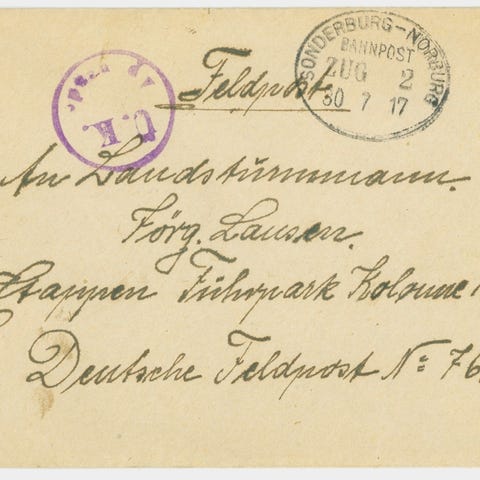 SONDERBURG-NORBURG
BAHNPOST
ZUG 2
30 7 17
U.K.
Feldpost.
An Landsturmmann.
Jörg. Lausen.
Etappen Fuhrpark Kolonne
Deutsche Feldpost No: 76